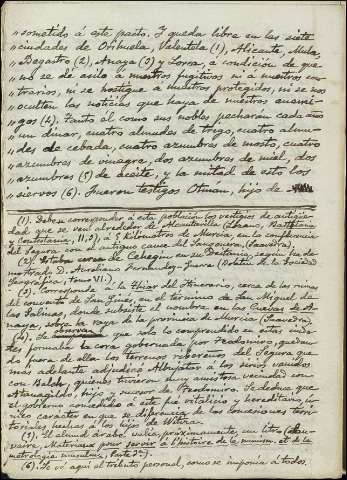 „sometido á este pacto. Y queda libre en las siete
„ciudades de Orihuela, Valentela (1), Alicante, Mula,
„Begastro (2), Anaya (3) y Lorca, á condición de que
„no se dé asilo á nuestros fugitivos ni á nuestros con-
„trarios, ni se hostigue á nuestros protegidos, ni se nos
„oculten las noticias que haya de nuestros enemi-
„gos (4). Tanto él como sus nobles pecharán cada año
„un dinar, cuatro almudes de trigo, cuatro almu-
„des de cebada, cuatro azumbres de mosto, cuatro
„azumbres de vinagre, dos azumbres de miel, dos
„azumbres (5) de aceite, y la mitad de esto los
„siervos (6). Fueron testigos Otman, hijo de
(1). Deben corresponder á esta población los vestigios de antigüe-
dad que se ven alrededor de Alcantarilla (Lozano, Bastitania
y Contestania, II, 3), á 5 kilómetros de Murcia, en la confluencia
del Segura con el antiguo cauce del Sangonera. (Saavedra).
(2). Estaba cerca de Cehegín, según ha de-
mostrado D. Aureliano Fernández-Guerra (Boletín de la Sociedad
Geográfica; Tomo VII).
(3). Corresponde á la Thiar del Itinerario, cerca de las ruinas
del convento de San Ginés, en el término de San Miguel de
las Salinas, donde subsiste el nombre en las Cuevas de A-
naya, sobre la raya de la provincia de Murcia (Saavedra).
(4). Se observará que solo lo comprendido en estas ciuda-
des formaba la cora gobernada por Teodomiro, quedan-
do fuera de ella los terrenos ribereños del Segura que
más adelante adjudicó Albujatar á los sirios venidos
con Balch, quienes tuvieron muy amistosa vecindad con
Atanagildo, hijo y sucesor de Teodomiro. Se deduce que
el gobierno concedido á éste fué vitalicio y hereditario, úni-
co carácter en que se diferencia de las concesiones terri-
toriales hechas á los hijos de Witiza.
(5). El almud árabe valía próximamente un litro (Sau-
vaire, Materiaux pour servir à l'histoire de la numism. et de la
metrología musulm., Parte 3ª).
(6). Se vé aquí el tributo personal, como se imponía á todos.